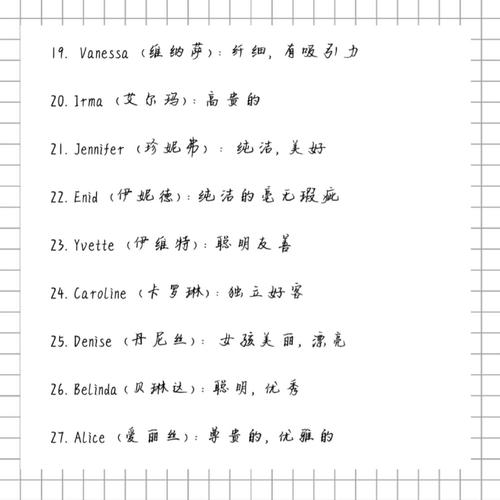 19. Vanessa（维纳萨）：纤细，有吸引力
20. Irma（艾尔玛）：高贵的
21. Jennifer（珍妮弗）：纯洁，美好
22. Enid（伊妮德）：纯洁的毫无瑕疵
23. Yvette（伊维特）：聪明友善
24. Caroline（卡罗琳）：独立好客
25. Denise（丹尼丝）：女孩美丽，漂亮
26. Belinda（贝琳达）：聪明，优秀
27. Alice（爱丽丝）：尊贵的，优雅的